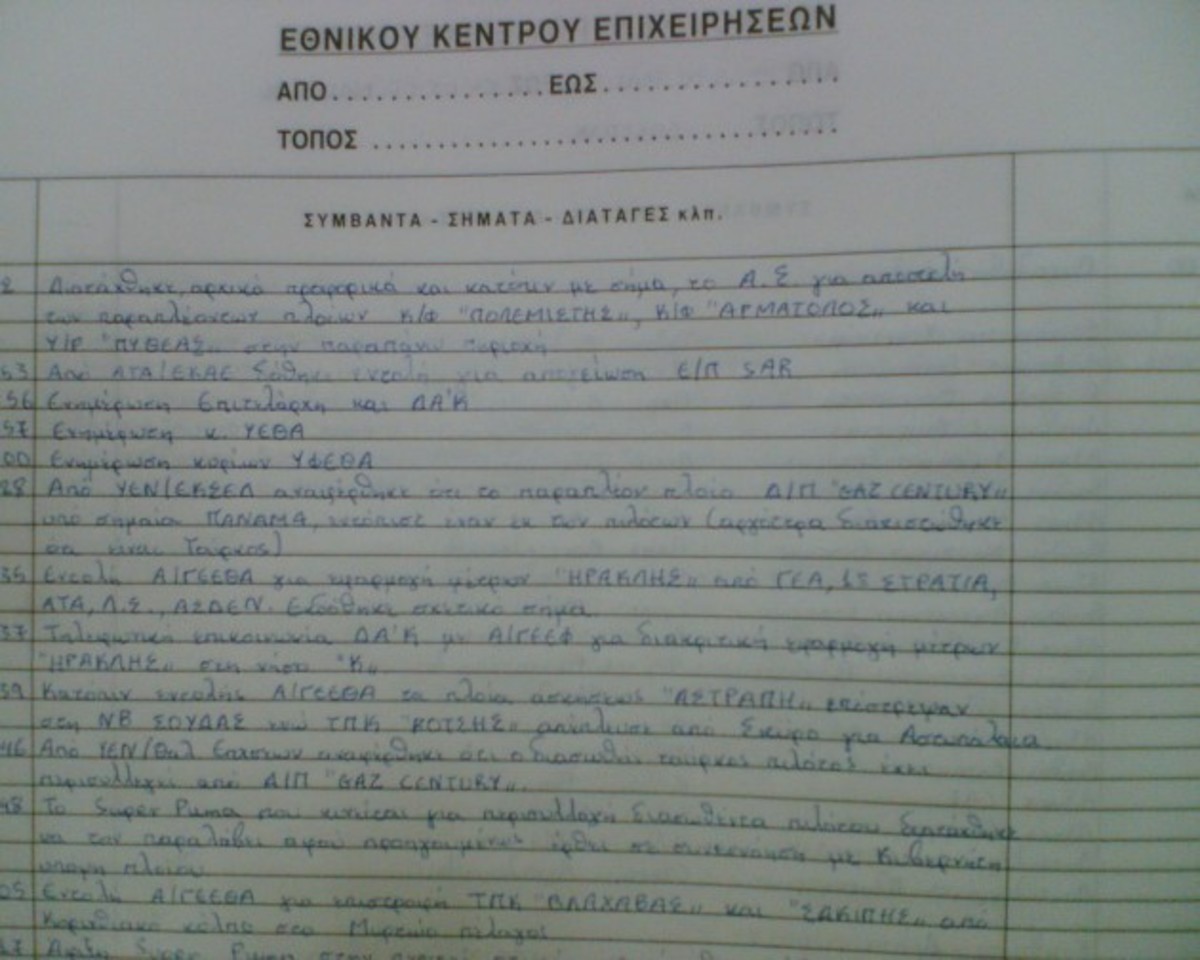 ΕΘΝΙΚΟΥ ΚΕΝΤΡΟΥ ΕΠΙΧΕΙΡΗΣΕΩΝ
ΑΠΟ...............ΕΩΣ.................
ΤΟΠΟΣ .................................
ΣΥΜΒΑΝΤΑ - ΣΗΜΑΤΑ - ΔΙΑΤΑΓΕΣ κλπ.
2 Διατάχθηκε, αρχικά προφορικά και κατόπιν με σήμα, το Α.Σ για αποστολή
των παραπλεόντων πλοίων Κ/Φ "ΠΟΛΕΜΙΣΤΗΣ", Κ/Φ "ΑΡΜΑΤΟΛΟΣ" και
Υ/Γ "ΠΥΘΕΑΣ" στην παραπάνω περιοχή
53 Από ΑΤΑ/ΕΚΑΕ δόθηκε εντολή για απογείωση Ε/Π SAR
56 Ενημέρωση Επιτελάρχη και ΔΑ'Κ
57 Ενημέρωση κ. ΥΕΘΑ
00 Ενημέρωση κυρίων ΥΦΕΘΑ
28 Από ΥΕΝ/ΕΚΣΕΔ αναφέρθηκε ότι το παραπλέον πλοίο Δ/Π "GAZ CENTURY"
υπό σημαία ΠΑΝΑΜΑ, εντόπισε έναν εκ των πιλότων (αργότερα διαπιστώθηκε
ότι είναι Τούρκος)
35 Εντολή Α/ΓΕΕΘΑ για εφαρμογή μέτρων "ΗΡΑΚΛΗΣ" από ΓΕΑ, 1Σ ΣΤΡΑΤΙΑ,
ΑΤΑ, Α.Σ., ΑΣΔΕΝ. Εκδόθηκε σχετικό σήμα
37 Τηλεφωνική επικοινωνία ΔΑ'Κ με Α/ΓΕΕΦ για διακριτική εφαρμογή μέτρων
"ΗΡΑΚΛΗΣ" στη νήσο "Κ"
39 Κατόπιν εντολής Α/ΓΕΕΘΑ τα πλοία ασκήσεως "ΑΣΤΡΑΠΗ" επέστρεψαν
στη ΝΒ ΣΟΥΔΑΣ ενώ ΤΠΚ "ΒΟΤΣΗΣ" απέπλευσε από Σκύρο για Αστυπάλαια
46 Από ΥΕΝ/Θαλ Επιχ αναφέρθηκε ότι ο διασωθείς τούρκος πιλότος έχει
περισυλλεγεί από Δ/Π "GAZ CENTURY".
48 Το Super Puma που κινείται για περισυλλογή διασωθέντα πιλότου διατάχθηκε
να τον παραλάβει αφού προηγουμένως έρθει σε συνεννόηση με Κυβερνήτη
υπόψη πλοίου
05 Εντολή Α/ΓΕΕΘΑ για επιστροφή ΤΠΚ "ΒΛΑΧΑΒΑΣ" και "ΣΑΚΙΠΗΣ" από
Κορινθιακό κόλπο στο Μυρτώο πέλαγος
17 Άφιξη Super Puma στην